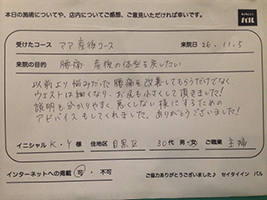 本日の施術についてや、店内についてご感想、ご意見いただければ幸いです。 バル
受けたコース ママ産後コース 来院日 26.11.5
来院の目的 腰痛 産後の体型を戻したい
以前より悩みだった腰痛を改善してもらうだけでなく
ウェストは細くなり、お尻も小さくして頂きました!
説明も分かりやすく、悪くしない様にするための
アドバイスもしてくれました。ありがとうございました!
イニシャル K・Y 様 住地区 目黒区 30代 男・女 ご職業 主婦
インターネットへの掲載 可・不可
ご協力ありがとうございました♪ セイタイイン バル